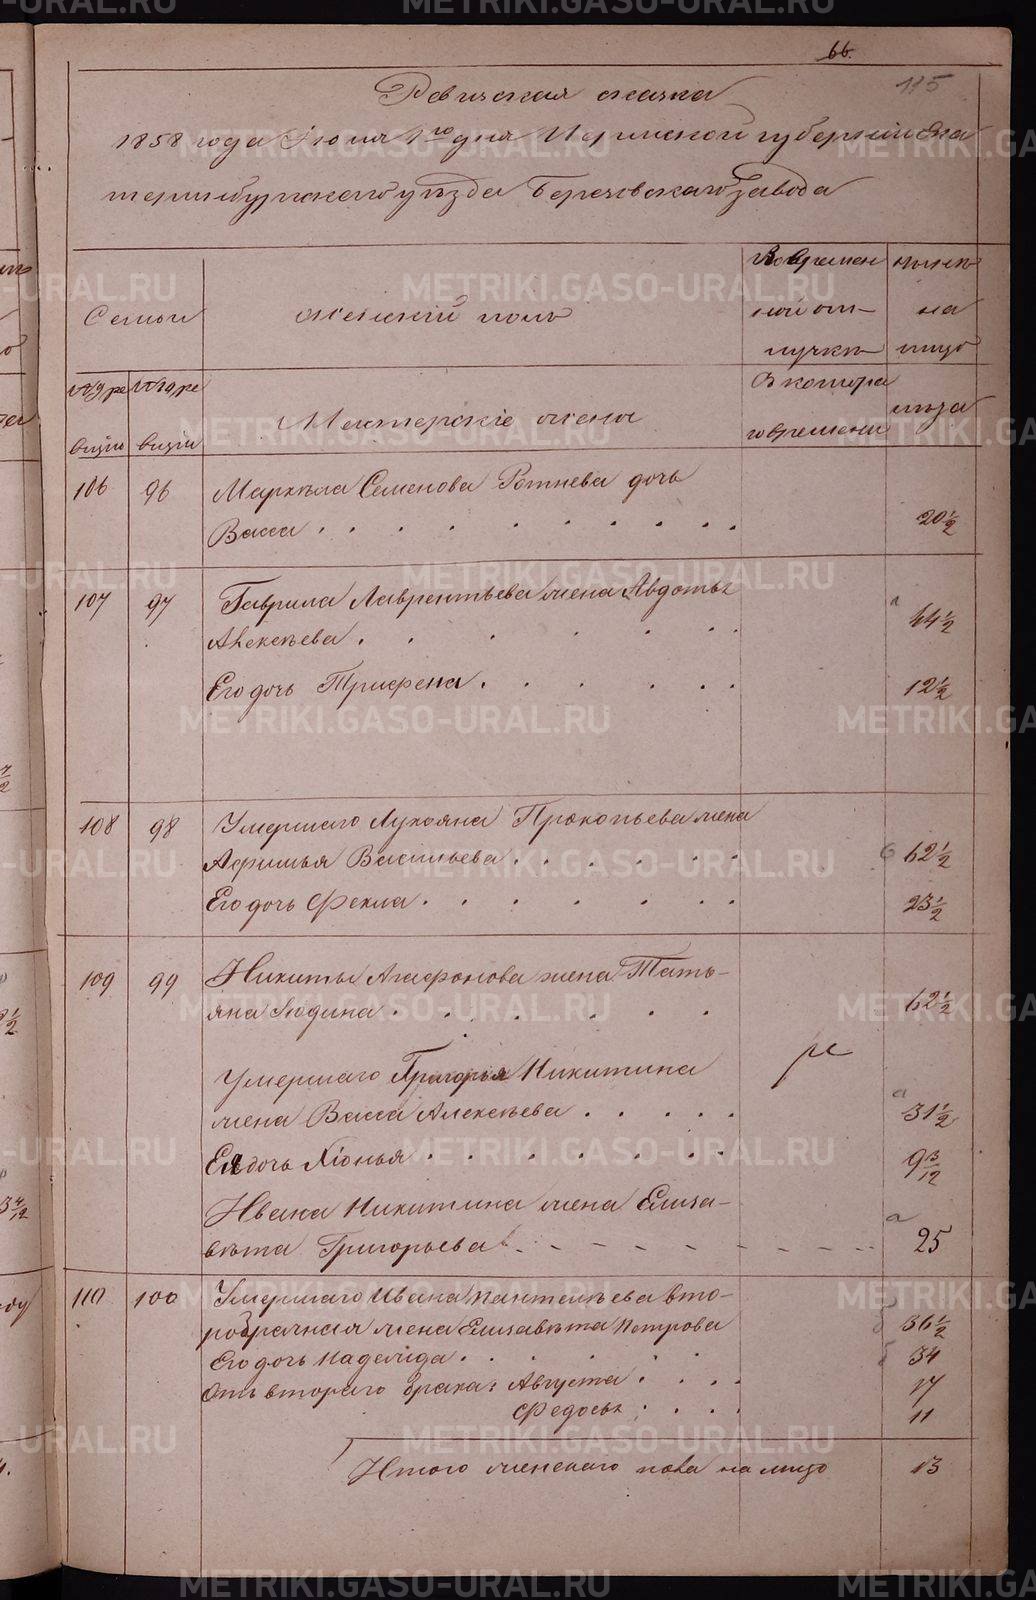 66.
115
Ревизская сказка
1858 года Июня 1го дня Пермской губернии Ека
теринбургскаго уѣзда Березовскаго завода
Семьи
женскій полъ
Во времен
ной от-
лучкѣ
нынѣ
на
лицо
№ 9 ре
визіи
№ 10 ре
визіи
Мастерскіе жены
В котора
го времени
лѣта
106 96 Маркела Семенова дочь
Васса 20½
107 97 Гаврила Лаврентьева жена Авдотья
Алексѣева 44½
Его дочь Трифена 12½
108 98 Умершаго Лукояна Прокопьева жена
Афимья Васильева 62½
Его дочь Фекла 23½
109 99 Никиты Агафонова жена Тать-
яна Юдина 62½
Умершаго Григорья Никитина
жена Васса Алексѣева 31½
Ея дочь Хіонья 9 3/12
Ивана Никитина жена Елиза-
вѣта Григорьева 25
110 100 Умершаго Ивана Пантелѣева вто-
робрачная жена Елизавѣта Петрова 36½
Его дочь Надежда 34
Отъ втораго брака: Августа 17
Федосья 11
Итого женскаго пола на лицо 13
METRIKI.GASO-URAL.RU